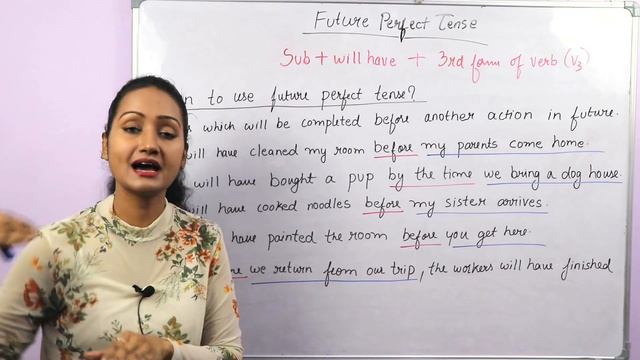 Future Perfect Tense
Sub + will have + 3rd form of verb (V3)
to use future perfect tense?
which will be completed before another action in future.
will have cleaned my room before my parents come home.
will have bought a pup by the time we bring a dog house.
will have cooked noodles before my sister arrives.
have painted the room before you get here.
we return from our trip, the workers will have finished